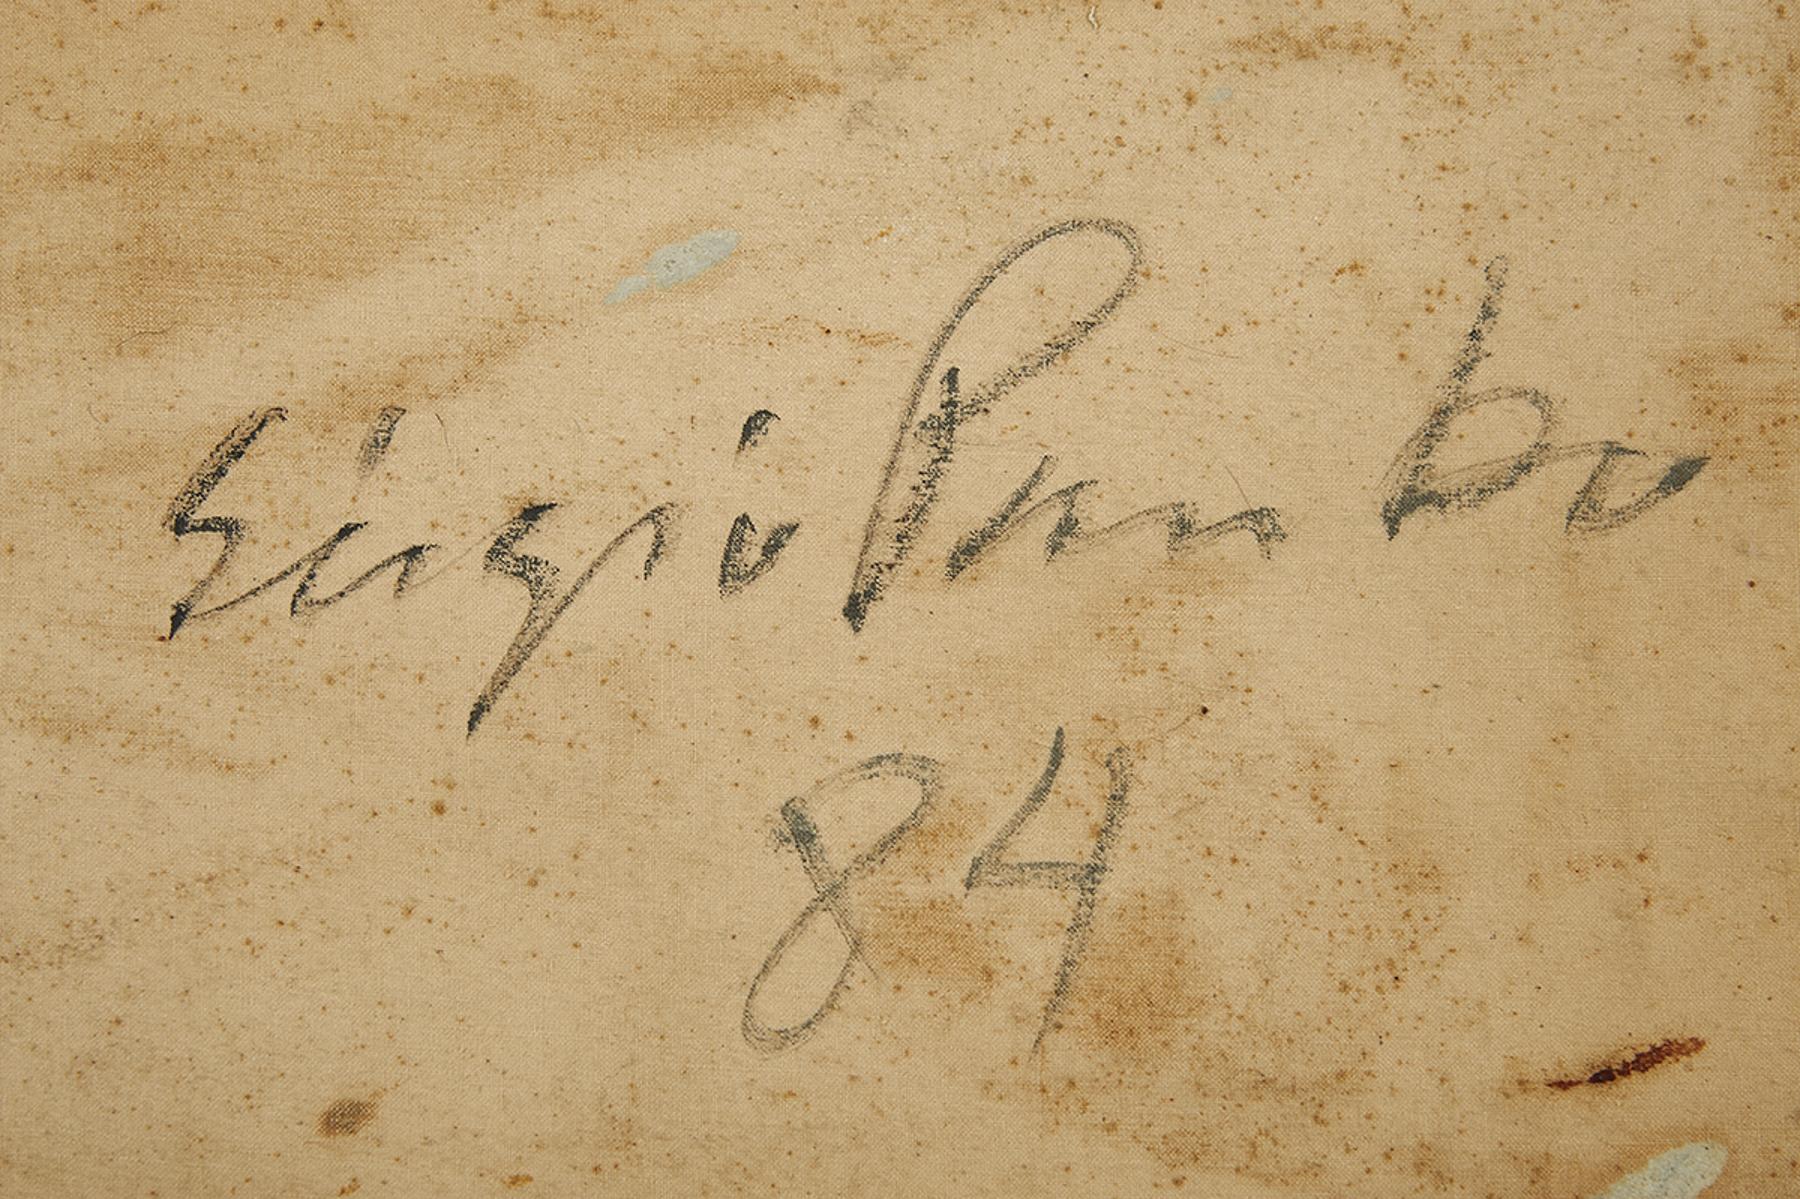 Sérgio Pombo
84